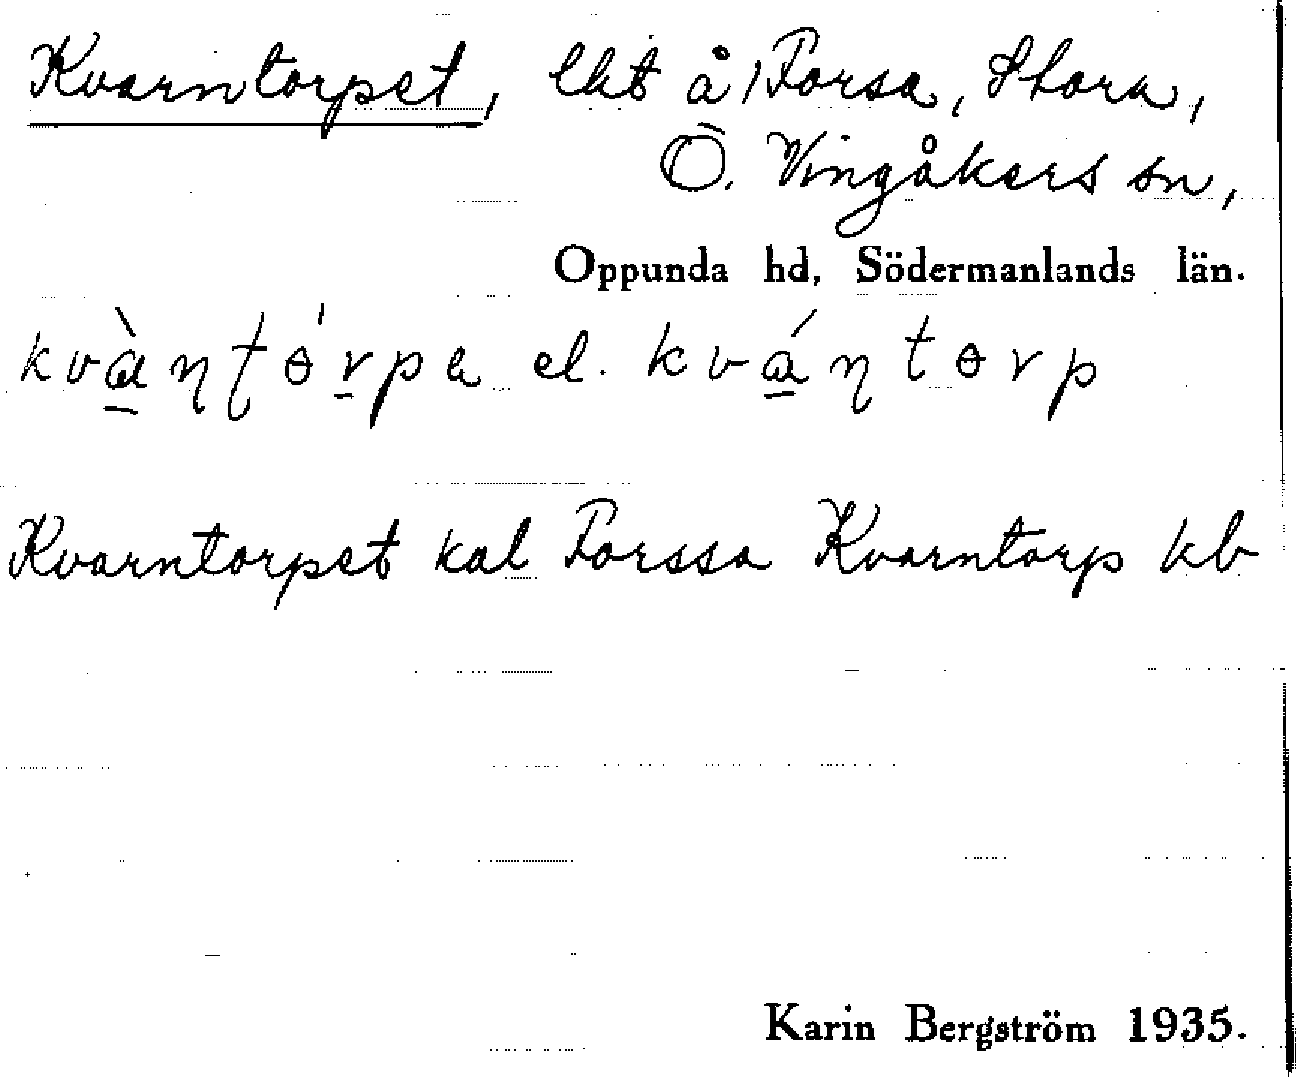 Kvarntorpet, lht å Forsa, Stora,
Ö. Vingåkers sn,
Oppunda hd, Södermanlands län.
kvàɳʈɵ́rpa el. kváɳtɵrp
Kvarntorpet kal Forssa Kvarntorp kb
Karin Bergström 1935.